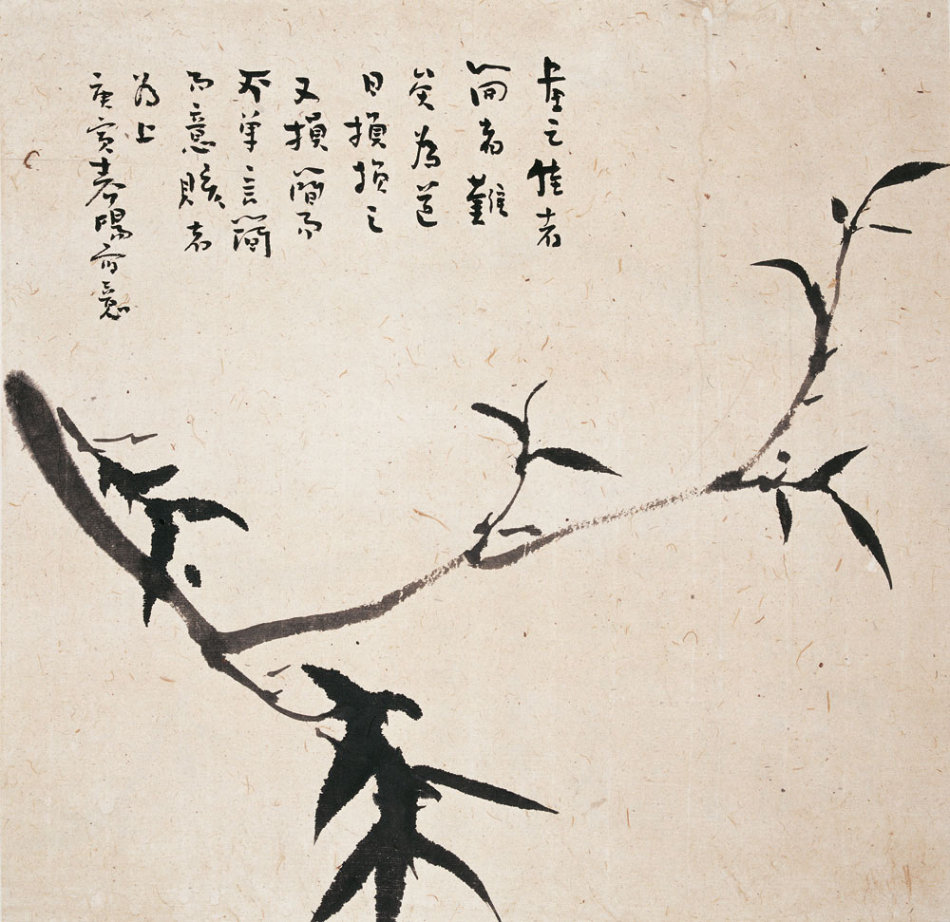 畫之佳者
簡者難
矣為道
日損損之
又損簡而
不單言簡
而意賅者
為上
庚寅春陽意